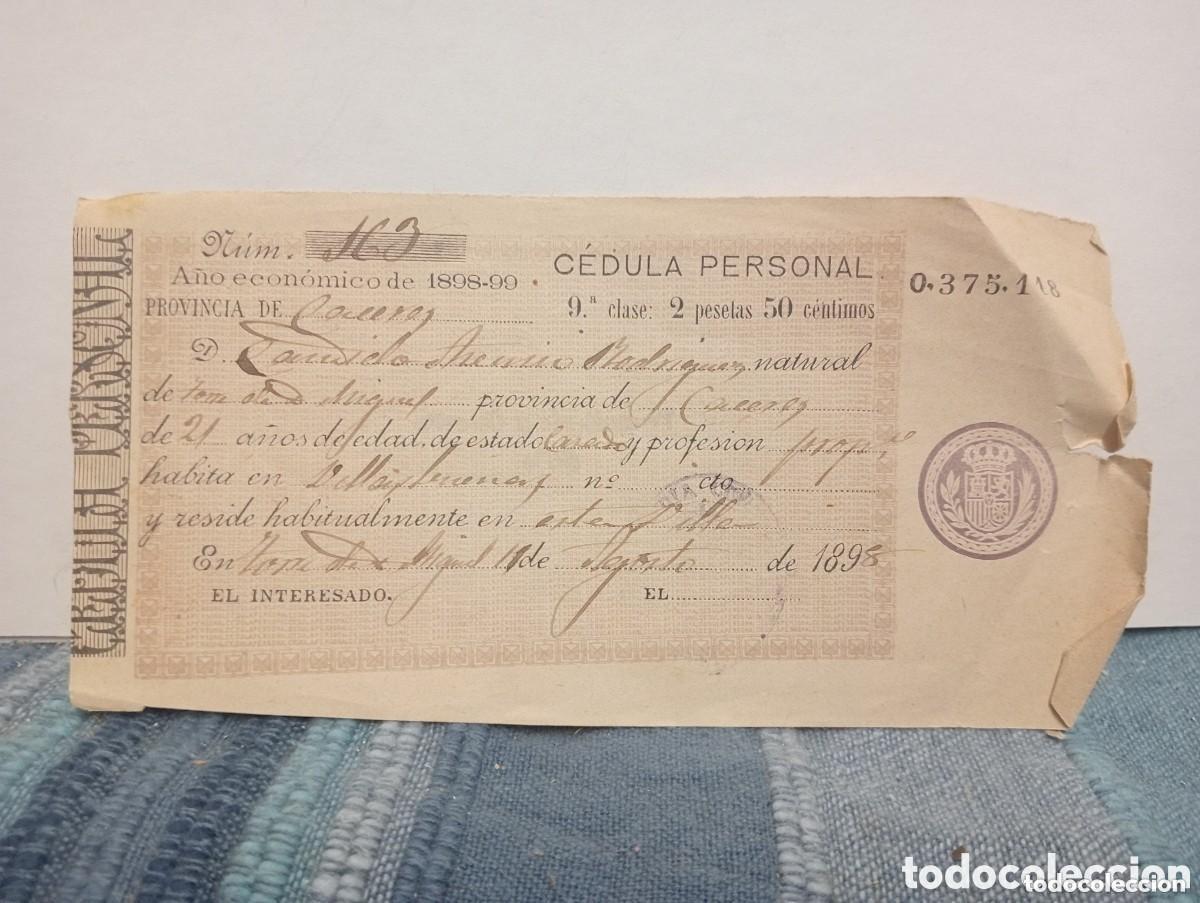 CÉDULA PERSONAL
Núm. 163
Año económico de 1898-99
PROVINCIA DE Caceres
CÉDULA PERSONAL
9.ª clase: 2 pesetas 50 céntimos
0.375.118
D. Candido Rodriguez natural
de Torre de D Miguel provincia de Caceres
de 21 años de edad, de estado Casado y profesion prop.º
habita en nº cto
y reside habitualmente en esta Villa
En Torre de D Miguel 11 de Agosto de 1898
EL INTERESADO.
EL
todocoleccion
todocoleccion